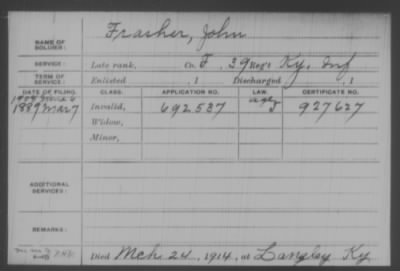 NAME OF SOLDIER: Frasher, John
SERVICE: Late rank, Co. F, 39 Reg't Ky. Inf
TERM OF SERVICE: Enlisted , 1 Discharged , 1
DATE OF FILING. CLASS. APPLICATION NO. LAW. CERTIFICATE NO.
1889 Mar 7 Invalid, 692537 927627
Widow,
Minor,
ADDITIONAL SERVICES:
REMARKS:
Died Mch 24, 1914, at Langley Ky